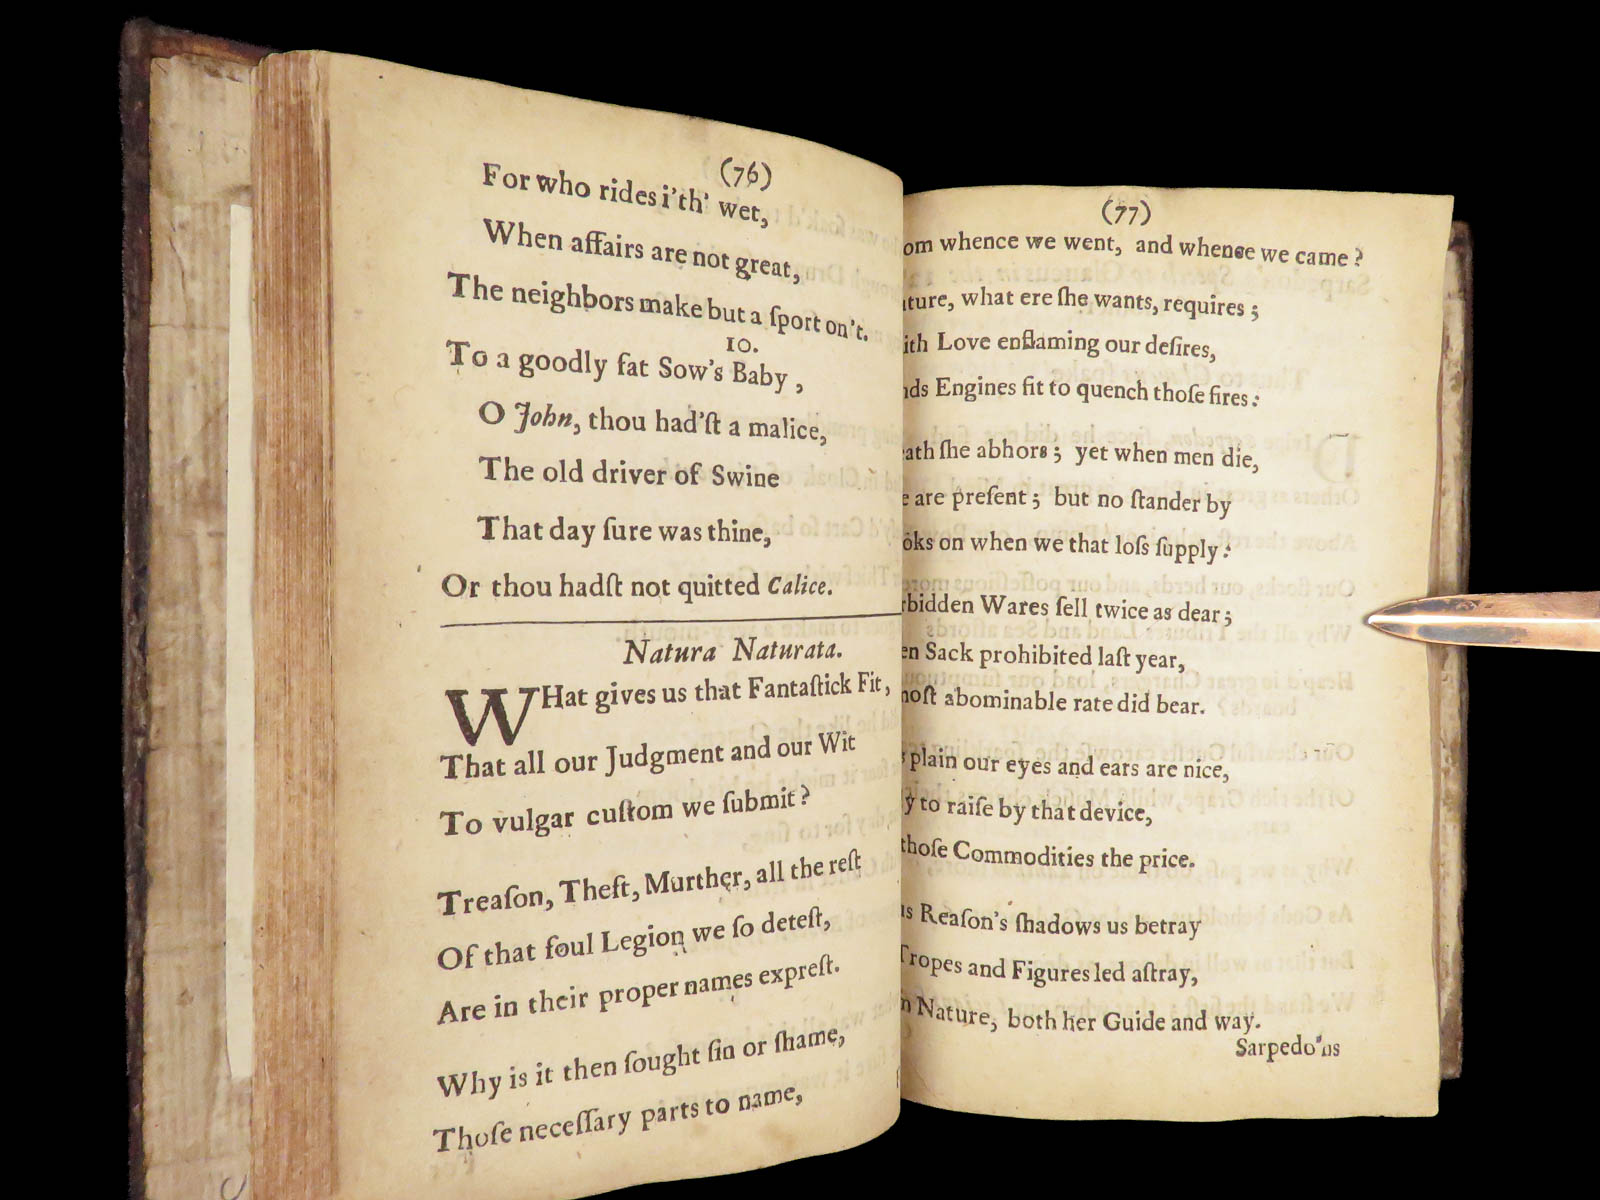 (76)
For who rides i'th' wet,
When affairs are not great,
The neighbors make but a ſport on't.
10.
To a goodly fat Sow's Baby,
O John, thou had'ſt a malice,
The old driver of Swine
That day ſure was thine,
Or thou hadſt not quitted Calice.
Natura Naturata.
WHat gives us that Fantaſtick Fit,
That all our Judgment and our Wit
To vulgar cuſtom we ſubmit?
Treaſon, Theft, Murther, all the reſt
Of that foul Legion we ſo deteſt,
Are in their proper names expreſt.
Why is it then ſought ſin or ſhame,
Thoſe neceſſary parts to name,
(77)
om whence we went, and whence we came?
ture, what ere ſhe wants, requires;
ith Love enflaming our deſires,
nds Engines fit to quench thoſe fires:
ath ſhe abhors; yet when men die,
e are preſent; but no ſtander by
oks on when we that loſs ſupply:
rbidden Wares ſell twice as dear;
en Sack prohibited laſt year,
moſt abominable rate did bear.
plain our eyes and ears are nice,
y to raiſe by that device,
thoſe Commodities the price.
us Reaſon's ſhadows us betray
Tropes and Figures led aſtray,
m Nature, both her Guide and way.
Sarpedo'ns